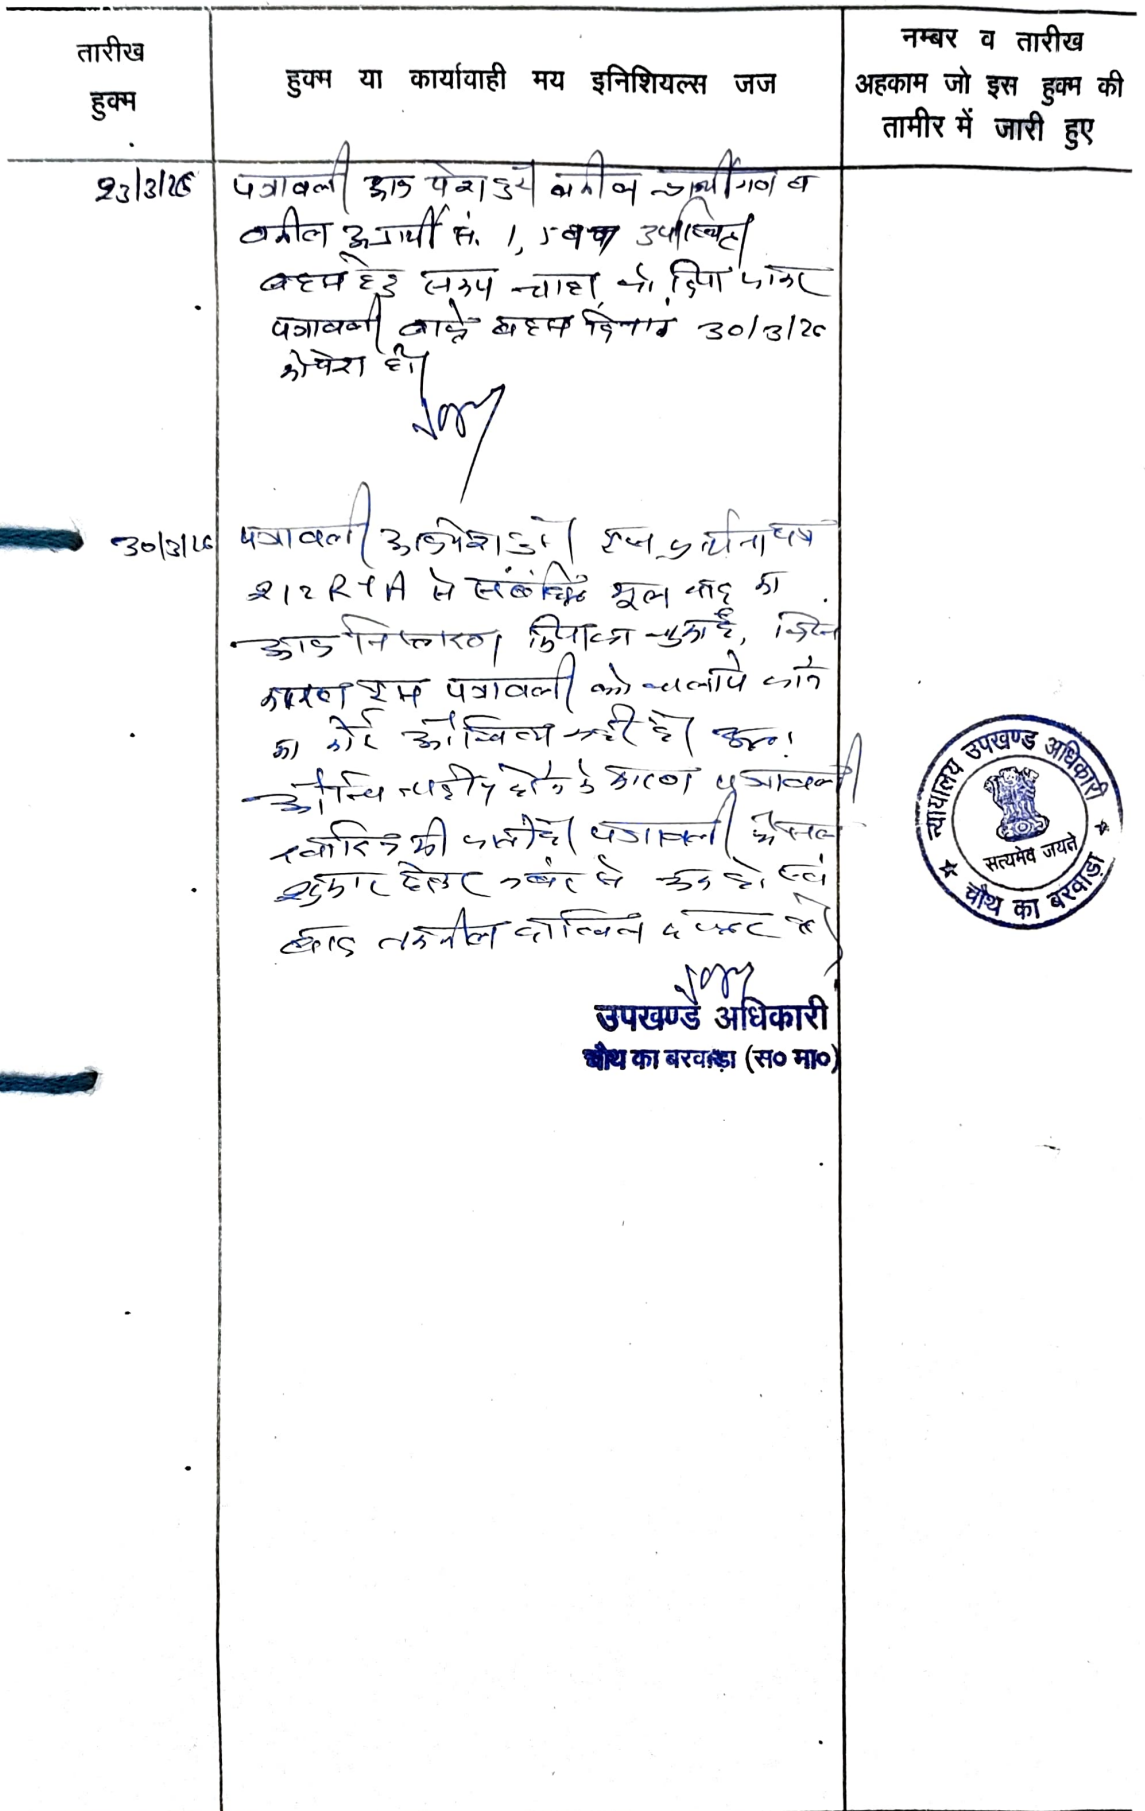 तारीख
हुक्म
हुक्म या कार्यावाही मय इनिशियल्स जज
नम्बर व तारीख
अहकाम जो इस हुक्म की
तामीर में जारी हुए
23/3/26
पत्रावली आज पेश हुई वकील प्रार्थीगण व
वकील अप्रार्थी सं. 1, 5 उपस्थित।
बहस हेतु समय चाहा जो दिया जाकर
पत्रावली वास्ते बहस दिनांक 30/3/26
को पेश हो।
30/3/26
पत्रावली आज पेश हुई। प्रार्थना पत्र
212 RTA से संबंधित मूल वाद का
आज निस्तारण किया जा चुका है, जिसके
कारण इस पत्रावली को चलाये जाने
का कोई औचित्य नहीं है। अतः
औचित्यहीन होने के कारण पत्रावली
खारिज की जाती है। पत्रावली फैसल
शुमार होकर नम्बर से कम हो एवं
बाद तकमील दाखिल दफ्तर हो।
उपखण्ड अधिकारी
चौथ का बरवाड़ा (स० मा०)
न्यायालय उपखण्ड अधिकारी
सत्यमेव जयते
चौथ का बरवाड़ा